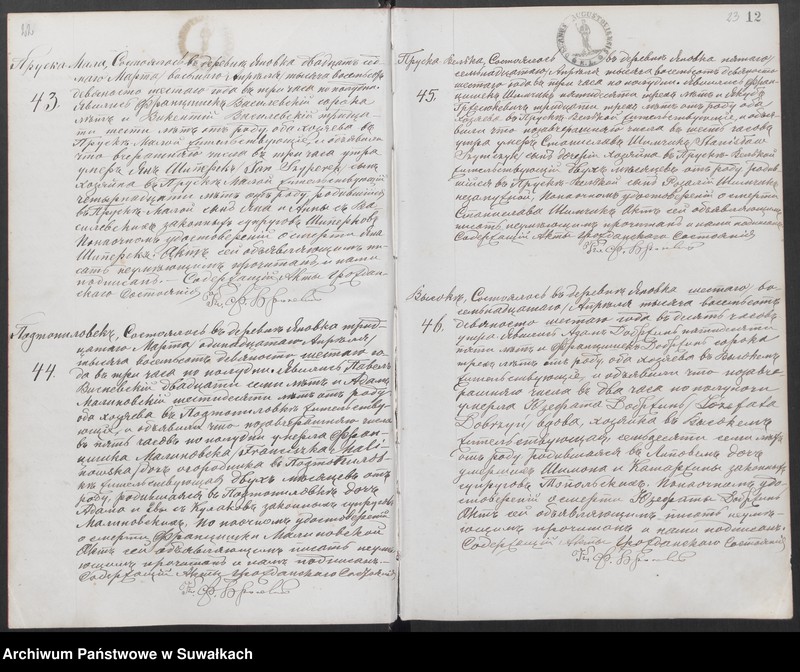 Пруска Мала, Состоялось въ деревнѣ Яновка двадцать
маго Марта, восьмаго Апрѣля тысяча восемьсотъ
43. девяносто шестаго года въ три часа по полудни.
явились Францишекъ Василевскій сорока
лѣтъ и Викентій Василевскій тридца-
ти шести лѣтъ отъ роду, оба хозяева въ
Прускѣ Малой жительствующіе, и объявили
что вчерашняго числа въ три часа утра
умеръ Янъ сынъ
хозяина въ Прускѣ Малой жительствующій
четырнадцати лѣтъ отъ роду, родившійся
въ Прускѣ Малой сынъ Яна и Анны съ Ва-
силевскихъ законныхъ супруговъ
По наочномъ удостовѣреніи о смерти Яна
Актъ сей объявляющимъ пи-
сать неумѣющимъ прочитанъ и нами
подписанъ. — Содержащій Акты Граждан-
скаго Состоянія
Подтополовекъ, Состоялось въ деревнѣ Яновка трид-
цатаго Марта, одинадцатаго Апрѣля,
44. тысяча восемьсотъ девяносто шестаго го-
да въ три часа по полудни. Явились Павелъ
двадцати семи лѣтъ и Адамъ
Малиновскій шестидесяти лѣтъ отъ роду
оба хозяева въ жительству-
ющіе, и объявили что позавчерашняго числа
въ пять часовъ по полудни умерла Фран-
цишка Малиновска /Franciszka Mali-
nowska/ дочь огородника въ
жительствующая двухъ мѣсяцевъ отъ
роду, родившаяся въ дочь
Адама и Евы съ Кулаковъ законныхъ супруговъ
Малиновскихъ. По наочномъ удостовѣреніи
о смерти Францишки Малиновской
Актъ сей объявляющимъ писать неумѣ-
ющимъ прочитанъ и нами подписанъ —
Содержащій Акты Гражданскаго Состоянія
23 12
Пруска Велька, Состоялось въ деревнѣ Яновка пятаго/
семнадцатаго/ Апрѣля тысяча восемьсотъ девяносто
45. шестаго года въ три часа по полудни. Явились Фран-
цишекъ пятидесяти трехъ лѣтъ и Якубъ
тридцати трехъ лѣтъ отъ роду оба
хозяева въ Прускѣ Велькой жительствующіе, и объя-
вили что позавчерашняго числа въ шесть часовъ
утра умеръ Станиславъ /Stanisław
сынъ дочери хозяина въ Прускѣ Велькой
жительствующей двухъ мѣсяцевъ отъ роду родив-
шійся въ Прускѣ Велькой сынъ Розаліи
незамужной. По наочномъ удостовѣреніи о смерти
Станислава Актъ сей объявляющимъ
писать неумѣющимъ прочитанъ и нами подписанъ
Содержащій Акты Гражданскаго Состоянія
Высоке, Состоялось въ деревнѣ Яновка шестаго/ во-
семнадцатаго/ Апрѣля тысяча восемьсотъ
46. девяносто шестаго года въ десять часовъ
утра. Явились Адамъ Добжинь пятидесяти
пяти лѣтъ и Францишекъ Добжинь сорока
трехъ лѣтъ отъ роду, оба хозяева въ Высокемъ
жительствующіе, и объявили что позавче-
рашняго числа въ два часа по полуночи
умерла Юзефата Добжинь /Józefata
Dobrzyń/ вдова, хозяйка въ Высокемъ
жительствующая, семьдесяти семи лѣтъ
отъ роду родившаяся въ Липовемъ дочь
умершихъ Шимона и Катаржины законныхъ
супруговъ Топольскихъ. По наочномъ удо-
стовѣреніи о смерти Юзефаты Добжинь
Актъ сей объявляющимъ писать неумѣ-
ющимъ прочитанъ и нами подписанъ.
Содержащій Акты Гражданскаго Состоянія
Archiwum Państwowe w Suwałkach